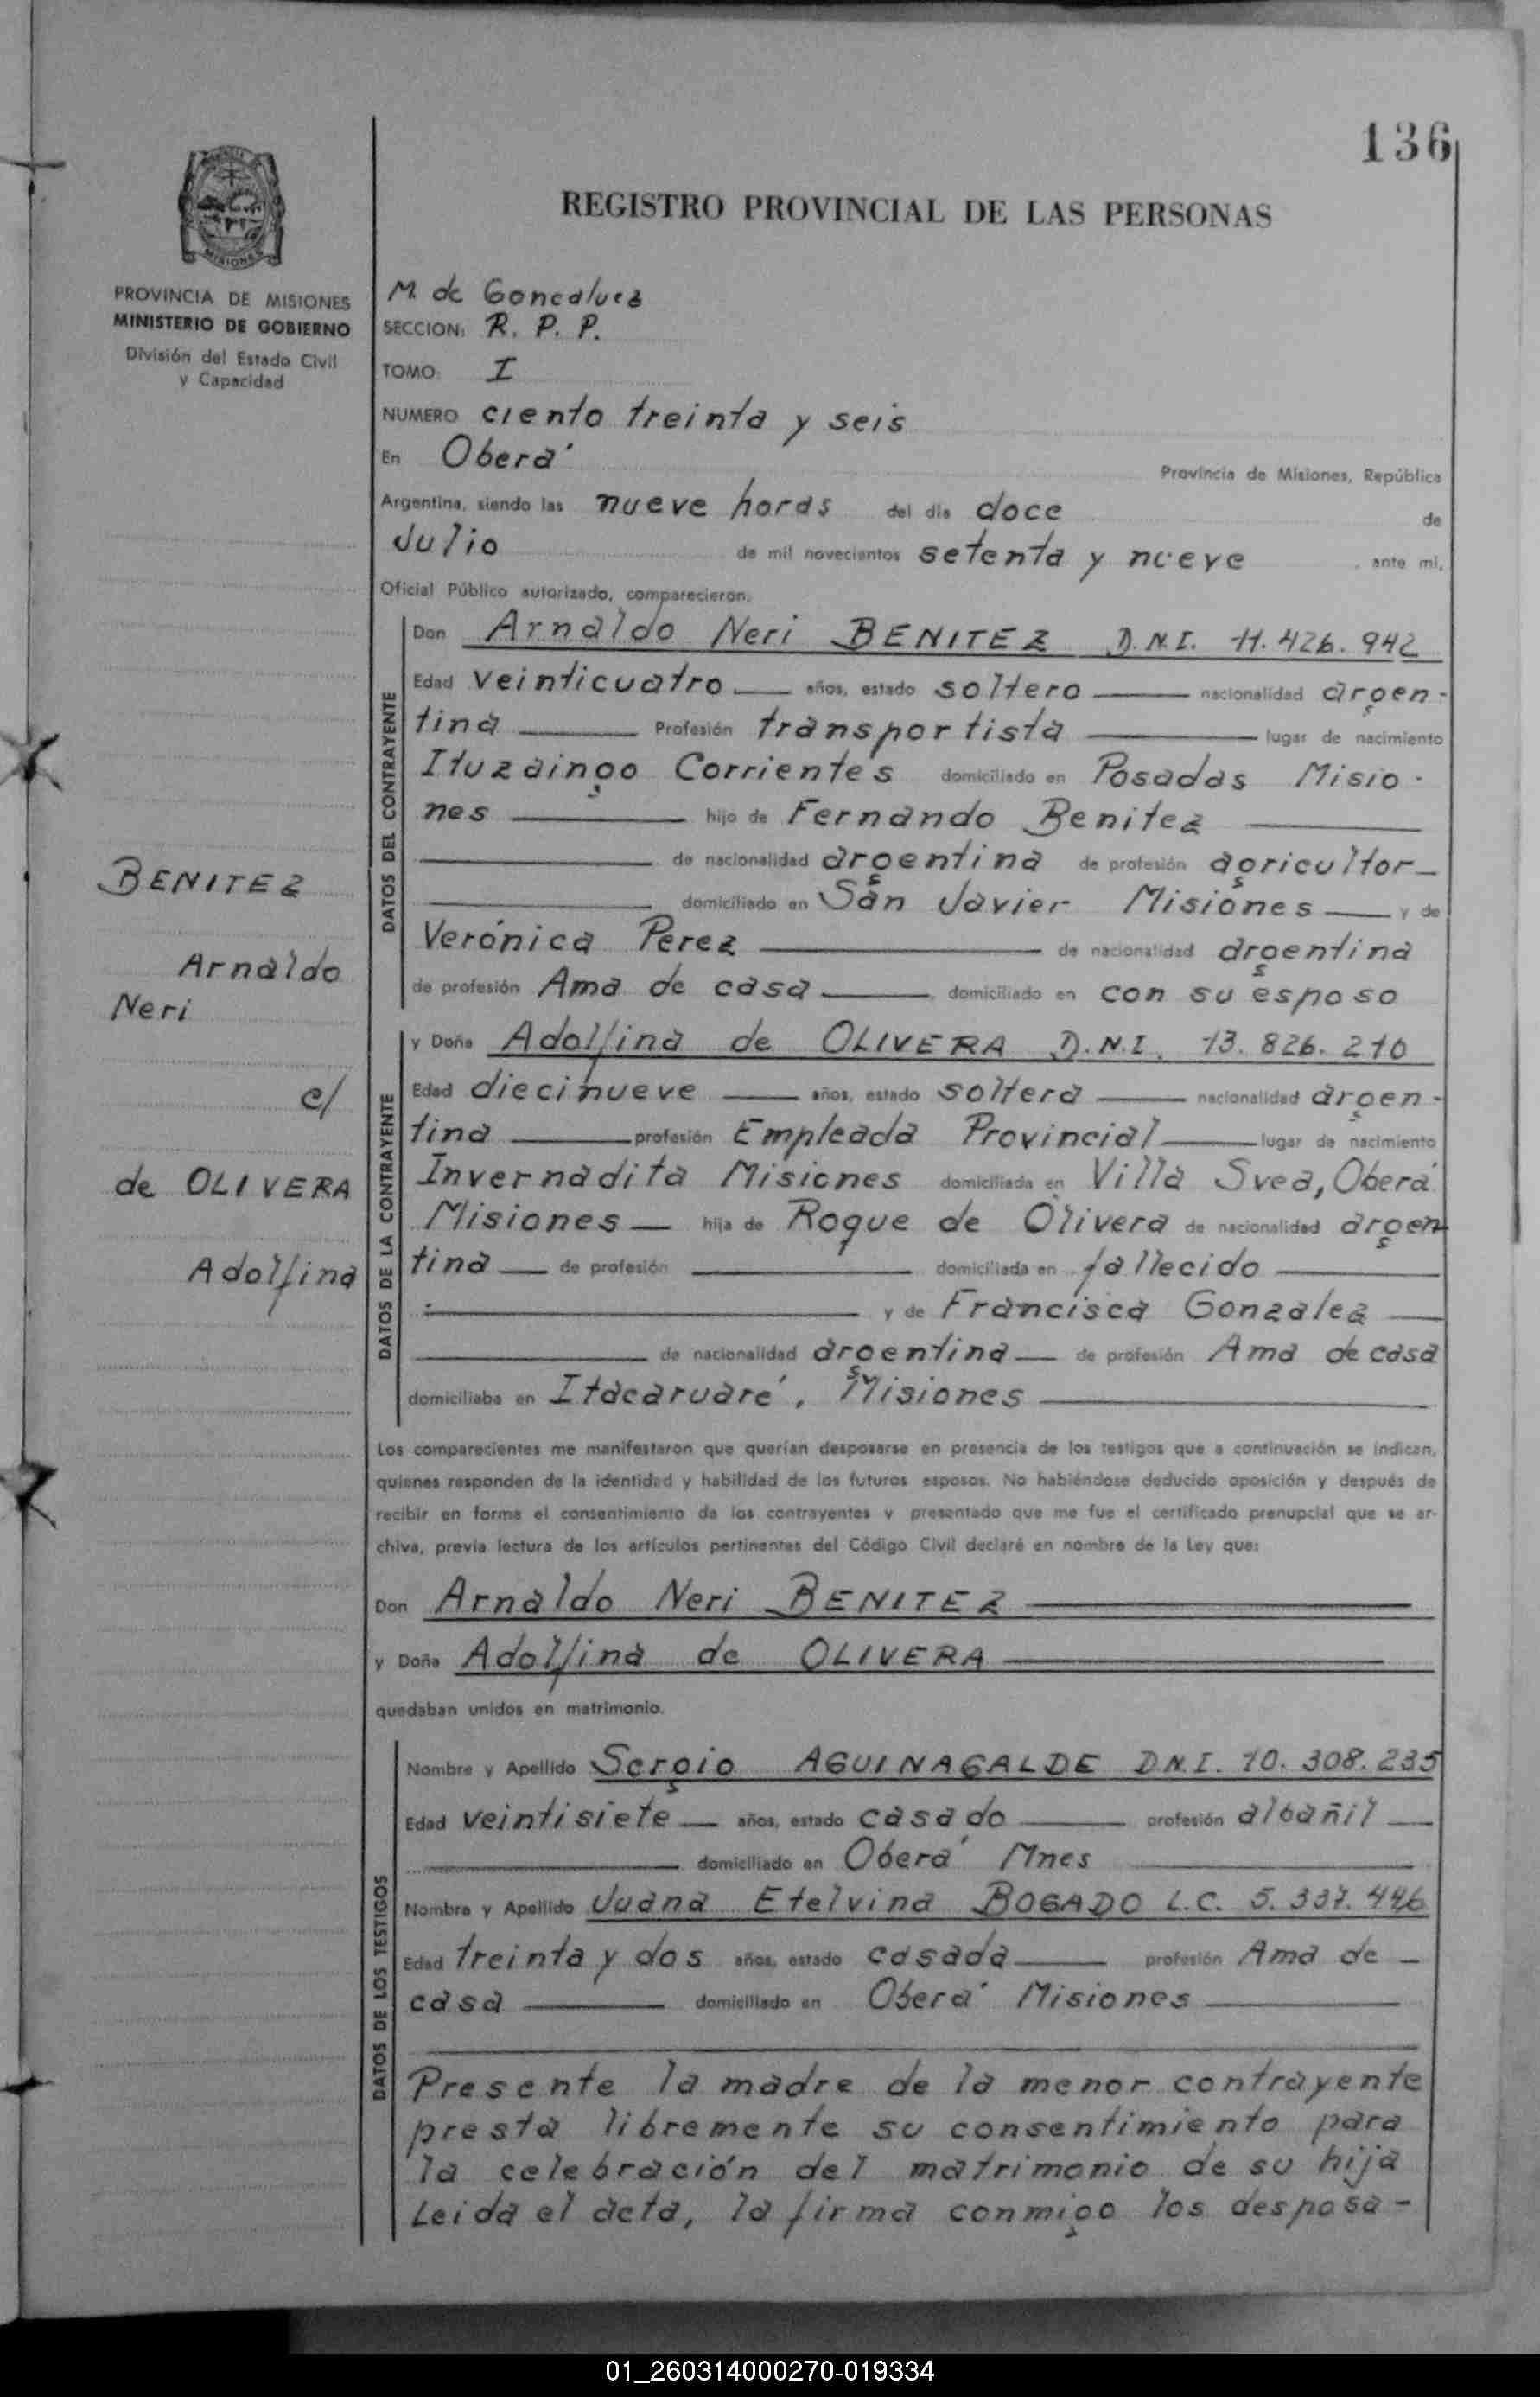 136
REGISTRO PROVINCIAL DE LAS PERSONAS
PROVINCIA DE MISIONES
MINISTERIO DE GOBIERNO
División del Estado Civil
y Capacidad
M. de Goncalves
SECCION: R. P. P.
TOMO: I
NUMERO ciento treinta y seis
En Oberá Provincia de Misiones, República
Argentina, siendo las nueve horas del día doce de
Julio de mil novecientos setenta y nueve, ante mí,
Oficial Público autorizado, comparecieron:
DATOS DEL CONTRAYENTE
Don Arnaldo Neri BENITEZ D.N.I. 11.426.942
Edad veinticuatro años, estado soltero nacionalidad argen-
tina Profesión transportista lugar de nacimiento
Ituzaingo Corrientes domiciliado en Posadas Misio-
nes hijo de Fernando Benitez
de nacionalidad argentina de profesión agricultor
domiciliado en San Javier Misiones y de
Verónica Perez de nacionalidad argentina
de profesión Ama de casa domiciliado en con su esposo
DATOS DE LA CONTRAYENTE
y Doña Adolfina de OLIVERA D.N.I. 13.826.210
Edad diecinueve años, estado soltera nacionalidad argen-
tina profesión Empleada Provincial lugar de nacimiento
Invernadita Misiones domiciliada en Villa Svea, Oberá
Misiones hija de Roque de Olivera de nacionalidad argen
tina de profesión domiciliada en fallecido
y de Francisca Gonzalez
de nacionalidad argentina de profesión Ama de casa
domiciliaba en Itacaruaré, Misiones
BENITEZ
Arnaldo
Neri
c/
de OLIVERA
Adolfina
Los comparecientes me manifestaron que querían desposarse en presencia de los testigos que a continuación se indican,
quienes responden de la identidad y habilidad de los futuros esposos. No habiéndose deducido oposición y después de
recibir en forma el consentimiento de los contrayentes y presentado que me fue el certificado prenupcial que se ar-
chiva, previa lectura de los artículos pertinentes del Código Civil declaré en nombre de la Ley que:
Don Arnaldo Neri BENITEZ
y Doña Adolfina de OLIVERA
quedaban unidos en matrimonio.
DATOS DE LOS TESTIGOS
Nombre y Apellido Sergio AGUINAGALDE D.N.I. 10.308.235
Edad veintisiete años, estado casado profesión albañil
domiciliado en Oberá Mnes
Nombre y Apellido Juana Etelvina BOGADO L.C. 5.337.446
Edad treinta y dos años, estado casada profesión Ama de
casa domiciliado en Oberá Misiones
Presente la madre de la menor contrayente
presta libremente su consentimiento para
la celebración del matrimonio de su hija
Leida el acta, la firma conmigo los desposa-
01_260314000270-019334